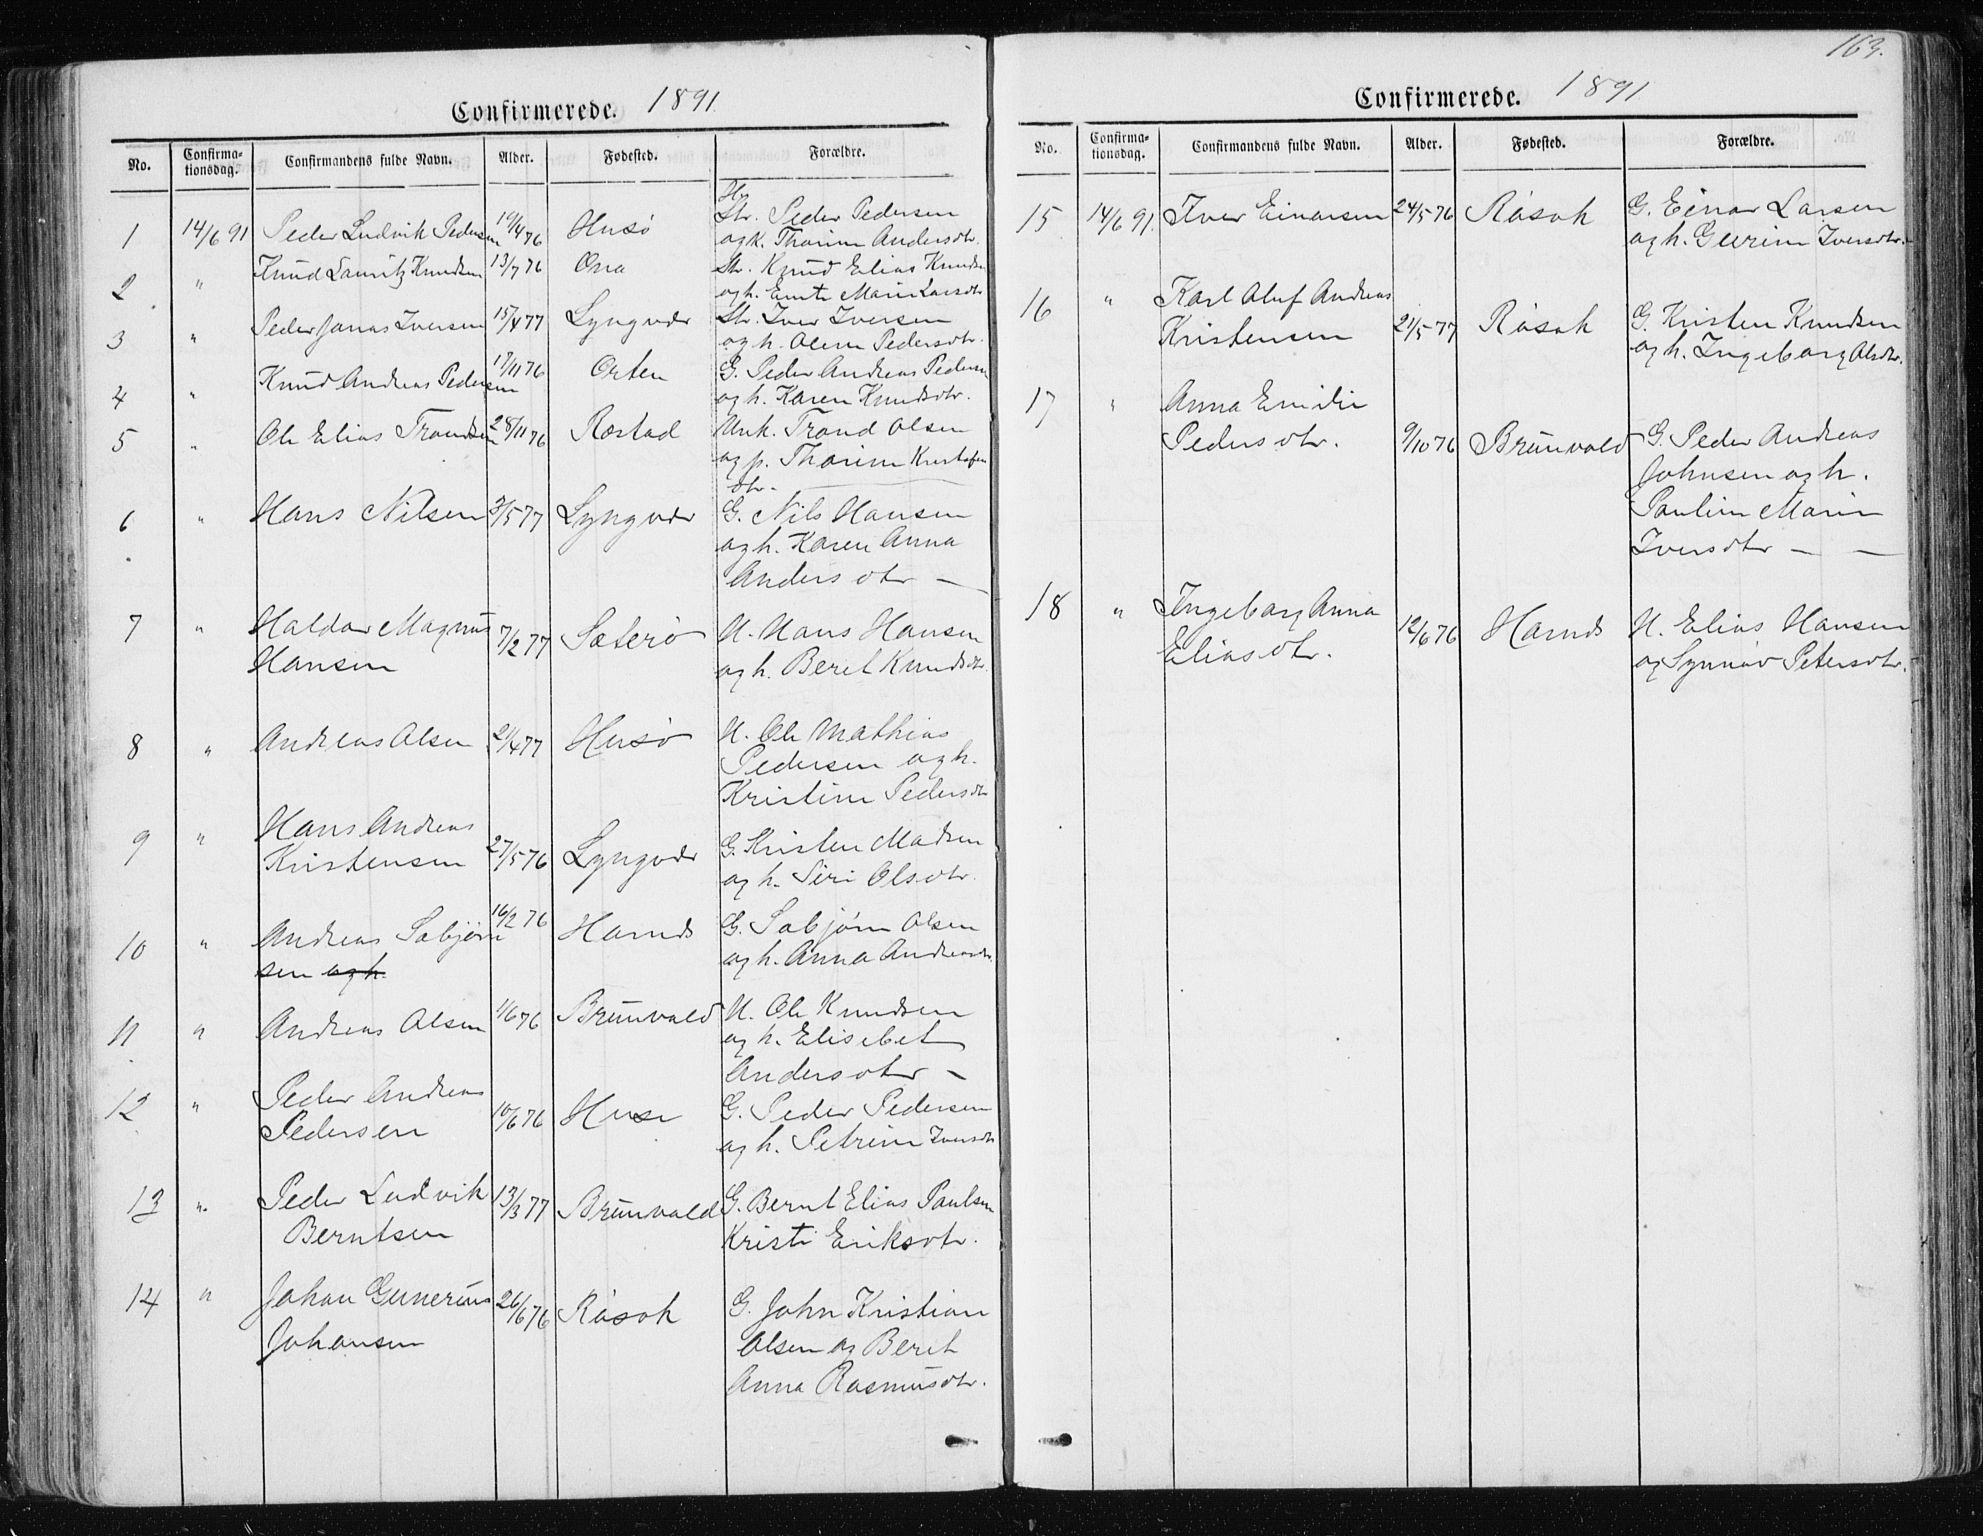 Confirmerede. 1891.
No. Confirma-tionsdag. Confirmandens fulde Navn. Alder. Fødested. Forældre.
1 14/6 91 Peder Ludvik Pedersen 19/4 76 Husö Str. Peder Pedersen
og k. Thorine Andersdtr.
2 " Knud Lauritz Knudsen 13/7 76 Ona Str. Knud Elias Knudsen
og h. Marie Larsdtr
3 " Peder Jonas Iversen 15/4 77 Lyngvær Str. Iver Iversen
og h. Oline Pedersdtr.
4 " Knud Andreas Pedersen 17/11 76 Orten G. Peder Andreas Pedersen
og h. Karen Knudsdtr.
5 " Ole Elias Trondsen 28/11 76 Røstad Unk. Trond Olsen
og p. Thorine Kristofer
dtr.
6 " Hans Nilsen 3/5 77 Lyngvær G. Nils Hansen
og h. Karen Anna
Andersdtr —
7 " Haldor Magnus 7/2 77 Sæterö H. Hans Hansen
Hansen og h. Beret Knudsdtr.
8 " Andreas Olsen 21/4 77 Husö H. Ole Mathias
Pedersen og h.
Kristine Pedersdtr
9 " Hans Andreas
Kristensen 27/5 76 Lyngvær G. Kristen Madsen
og h. Siri Olsdtr.
10 " Andreas Sabjørn 16/2 76 Harnds G. Sabjørn Olsen
sen og h. og h. Anna Andreasdtr.
11 " Andreas Olsen 1/6 76 Brunvold H. Ole Knudsen
og h. Elisebet
Andersdtr —
12 " Peder Andreas
Pedersen 10/6 76 Huse G. Peder Pedersen
og h. Petrine Iversdtr
13 " Peder Ludvik 13/3 77 Brunvold G. Bernt Elias Paulsen
Berntsen Kristi Eriksdtr.
14 " Johan Gunerius 26/6 76 Råsok G. John Kristian
Johansen Olsen og Beret
Anna Rasmusdtr.
163.
Confirmerede. 1891
No. Confirma-tionsdag. Confirmandens fulde Navn. Alder. Fødested. Forældre.
15 14/6 91. Iver Einarsen 24/5 76 Råsok G. Einar Larsen
og h. Gurine Iversdtr.
16 " Karl Oluf Andreas
Kristensen 21/5 77 Råsok G. Kristen Knudsen
og h. Ingeborg Olsdtr.
17 " Anna Emilie
Pedersdtr. 9/10 76 Brunvold G. Peder Andreas
Johnsen og h.
Pauline Marie
Iversdtr — —
18 " Ingeborg Anna
Eliasdtr. 12/6 76 Harnds H. Elias Hansen
og Synnøv Petersdtr.